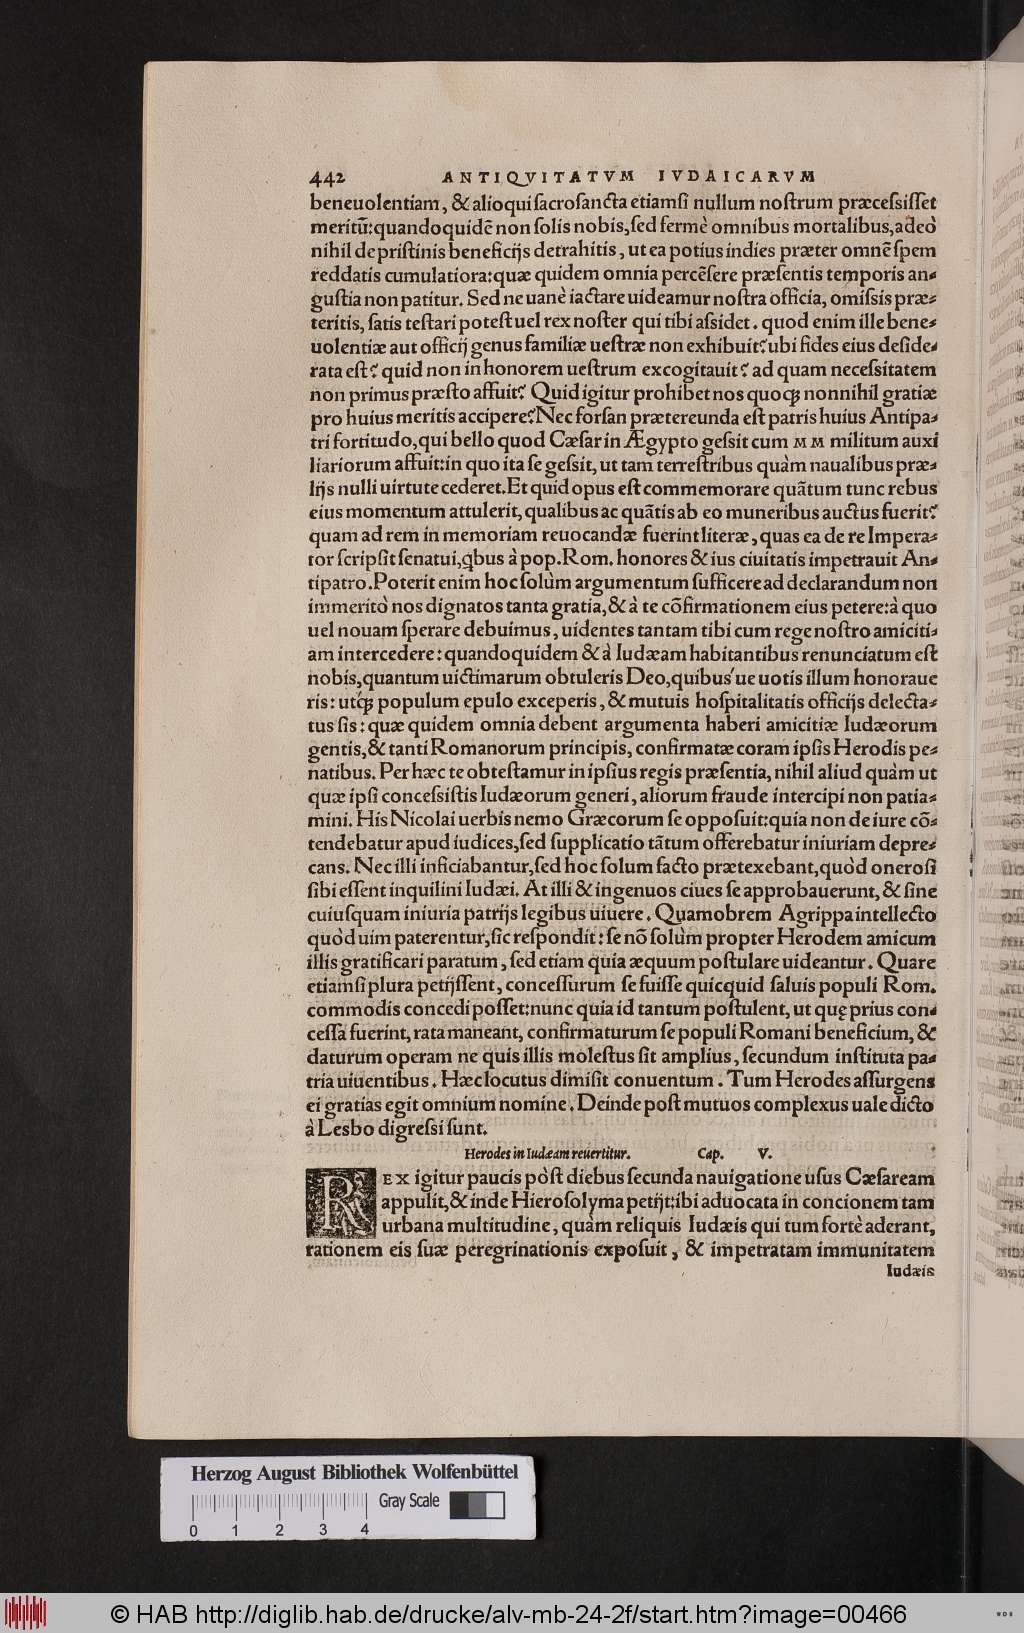 442 ANTIQVITATVM IVDAICARVM
beneuolentiam, & alioqui ſacroſancta etiamſi nullum noſtrum præceſsiſſet
meritũ: quandoquidẽ non ſolis nobis, ſed fermè omnibus mortalibus, adeò
nihil de priſtinis beneficijs detrahitis, ut ea potius indies præter omnẽ ſpem
reddatis cumulatiora: quæ quidem omnia percẽſere præſentis temporis an-
guſtia non patitur. Sed ne uanè iactare uideamur noſtra officia, omiſsis præ-
teritis, ſatis teſtari poteſt uel rex noſter qui tibi aſsidet. quod enim ille bene-
uolentiæ aut officij genus familiæ ueſtræ non exhibuit? ubi fides eius deſide-
rata eſt? quid non in honorem ueſtrum excogitauit? ad quam neceſsitatem
non primus præſto affuit? Quid igitur prohibet nos quoq; nonnihil gratiæ
pro huius meritis accipere? Nec forſan prætereunda eſt patris huius Antipa-
tri fortitudo, qui bello quod Cæſar in Ægypto geſsit cum MM militum auxi
liariorum affuit: in quo ita ſe geſsit, ut tam terreſtribus quàm naualibus præ-
lijs nulli uirtute cederet. Et quid opus eſt commemorare quãtum tunc rebus
eius momentum attulerit, qualibus ac quãtis ab eo muneribus auctus fuerit?
quam ad rem in memoriam reuocandæ fuerint literæ, quas ea de re Impera-
tor ſcripſit ſenatui, q̃bus à pop. Rom. honores & ius ciuitatis impetrauit An-
tipatro. Poterit enim hoc ſolùm argumentum ſufficere ad declarandum non
immeritò nos dignatos tanta gratia, & à te cõfirmationem eius petere: à quo
uel nouam ſperare debuimus, uidentes tantam tibi cum rege noſtro amiciti-
am intercedere: quandoquidem & à Iudæam habitantibus renunciatum eſt
nobis, quantum uictimarum obtuleris Deo, quibus'ue uotis illum honoraue
ris: utq́; populum epulo exceperis, & mutuis hoſpitalitatis officijs delecta-
tus ſis: quæ quidem omnia debent argumenta haberi amicitiæ Iudæorum
gentis, & tanti Romanorum principis, confirmatæ coram ipſis Herodis pe-
natibus. Per hæc te obteſtamur in ipſius regis præſentia, nihil aliud quàm ut
quæ ipſi conceſsiſtis Iudæorum generi, aliorum fraude intercipi non patia-
mini. His Nicolai uerbis nemo Græcorum ſe oppoſuit: quia non de iure cõ-
tendebatur apud iudices, ſed ſupplicatio tãtum offerebatur iniuriam depre-
cans. Nec illi inficiabantur, ſed hoc ſolum facto prætexebant, quòd oneroſi
ſibi eſſent inquilini Iudæi. At illi & ingenuos ciues ſe approbauerunt, & ſine
cuiuſquam iniuria patrijs legibus uiuere. Quamobrem Agrippa intellecto
quòd uim paterentur, ſic reſpondit: ſe nõ ſolùm propter Herodem amicum
illis gratificari paratum, ſed etiam quia æquum poſtulare uideantur. Quare
etiamſi plura petijſſent, conceſſurum ſe fuiſſe quicquid ſaluis populi Rom.
commodis concedi poſſet: nunc quia id tantum poſtulent, ut quę prius con-
ceſſa fuerint, rata maneant, confirmaturum ſe populi Romani beneficium, &
daturum operam ne quis illis moleſtus ſit amplius, ſecundum inſtituta pa-
tria uiuentibus. Hæc locutus dimiſit conuentum. Tum Herodes aſſurgens
ei gratias egit omnium nomine. Deinde poſt mutuos complexus uale dicto
à Lesbo digreſsi ſunt.
Herodes in Iudæam reuertitur. Cap. V.
REX igitur paucis pòſt diebus ſecunda nauigatione uſus Cæſaream
appulit, & inde Hieroſolyma petijt: ibi aduocata in concionem tam
urbana multitudine, quàm reliquis Iudæis qui tum fortè aderant,
rationem eis ſuæ peregrinationis expoſuit, & impetratam immunitatem
Iudæis
Herzog August Bibliothek Wolfenbüttel
Gray Scale
0 1 2 3 4
© HAB http://diglib.hab.de/drucke/alv-mb-24-2f/start.htm?image=00466